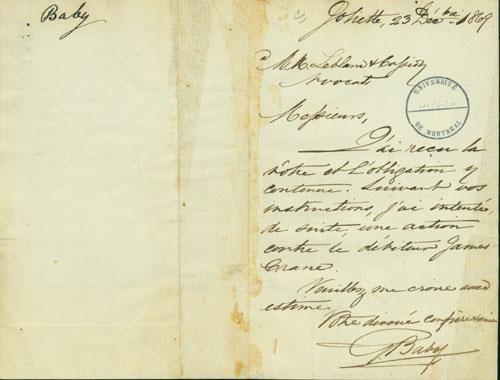 Baby
Joliette, 23 Décbre 1869
MM Leblanc & Cassidy
Avocats
UNIVERSITÉ
DE MONTRÉAL
Messieurs,
J'ai reçu la
vôtre et l'obligation y
contenue. Suivant vos
instructions, j'ai intenté
de suite, une action
contre le débiteur James
Crane.
Veuillez me croire avec
estime
Votre dévoué confrère
G. Baby